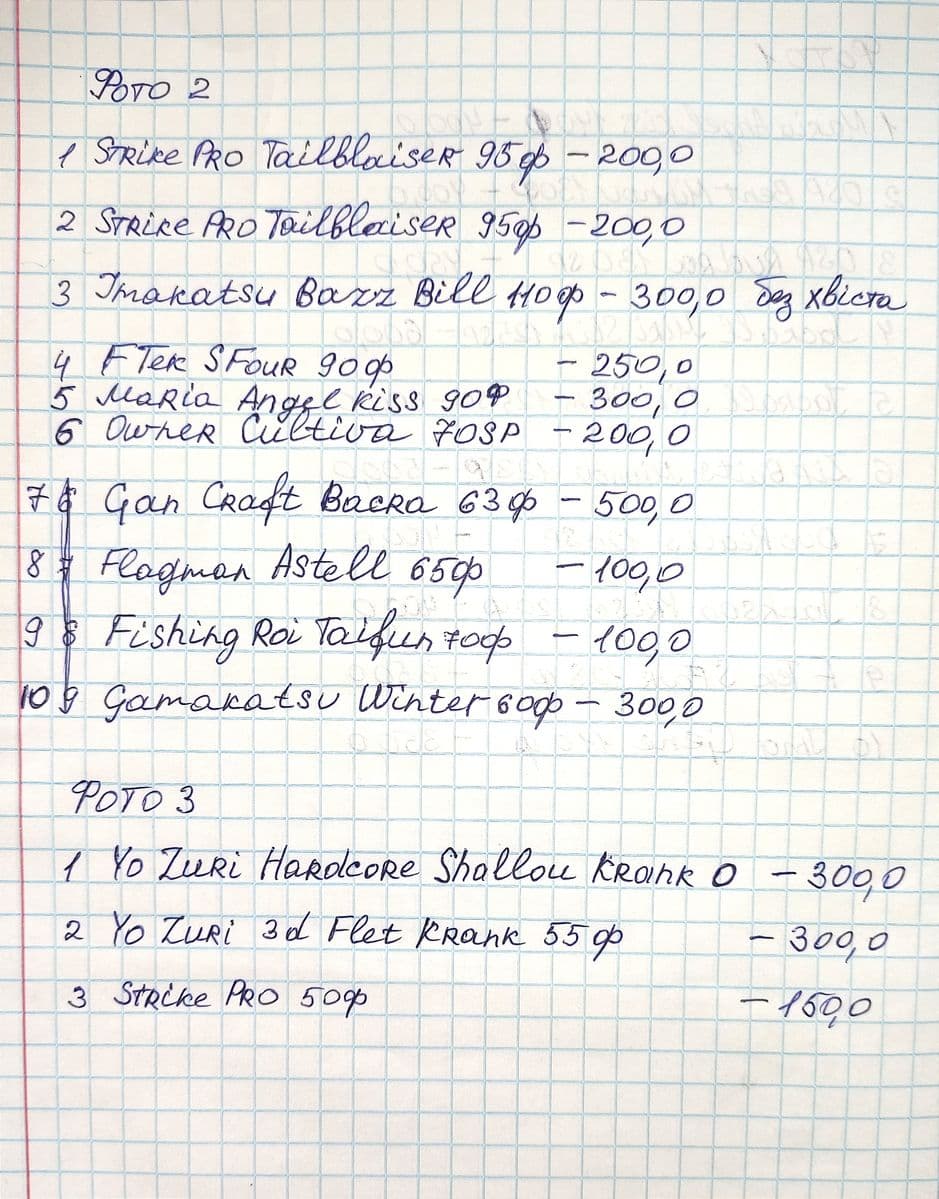 Фото 2
1 Strike Pro Tailblaiser 95ф – 200,0
2 Strike Pro Tailblaiser 95ф – 200,0
3 Imakatsu Bazz Bill 110ф – 300,0 без хвіста
4 FTek SFour 90ф – 250,0
5 Maria Angel kiss 90Ф – 300,0
6 Owner Cultiva 70SP – 200,0
7 Gan Craft Bacra 63ф – 500,0
8 Flagman Astell 65ф – 100,0
9 Fishing Roi Taifun 70ф – 100,0
10 Gamakatsu Winter 60ф – 300,0
Фото 3
1 Yo Zuri Hardcore Shallou Krank 0 – 300,0
2 Yo Zuri 3d Flet Krank 55ф – 300,0
3 Strike Pro 50ф – 150,0